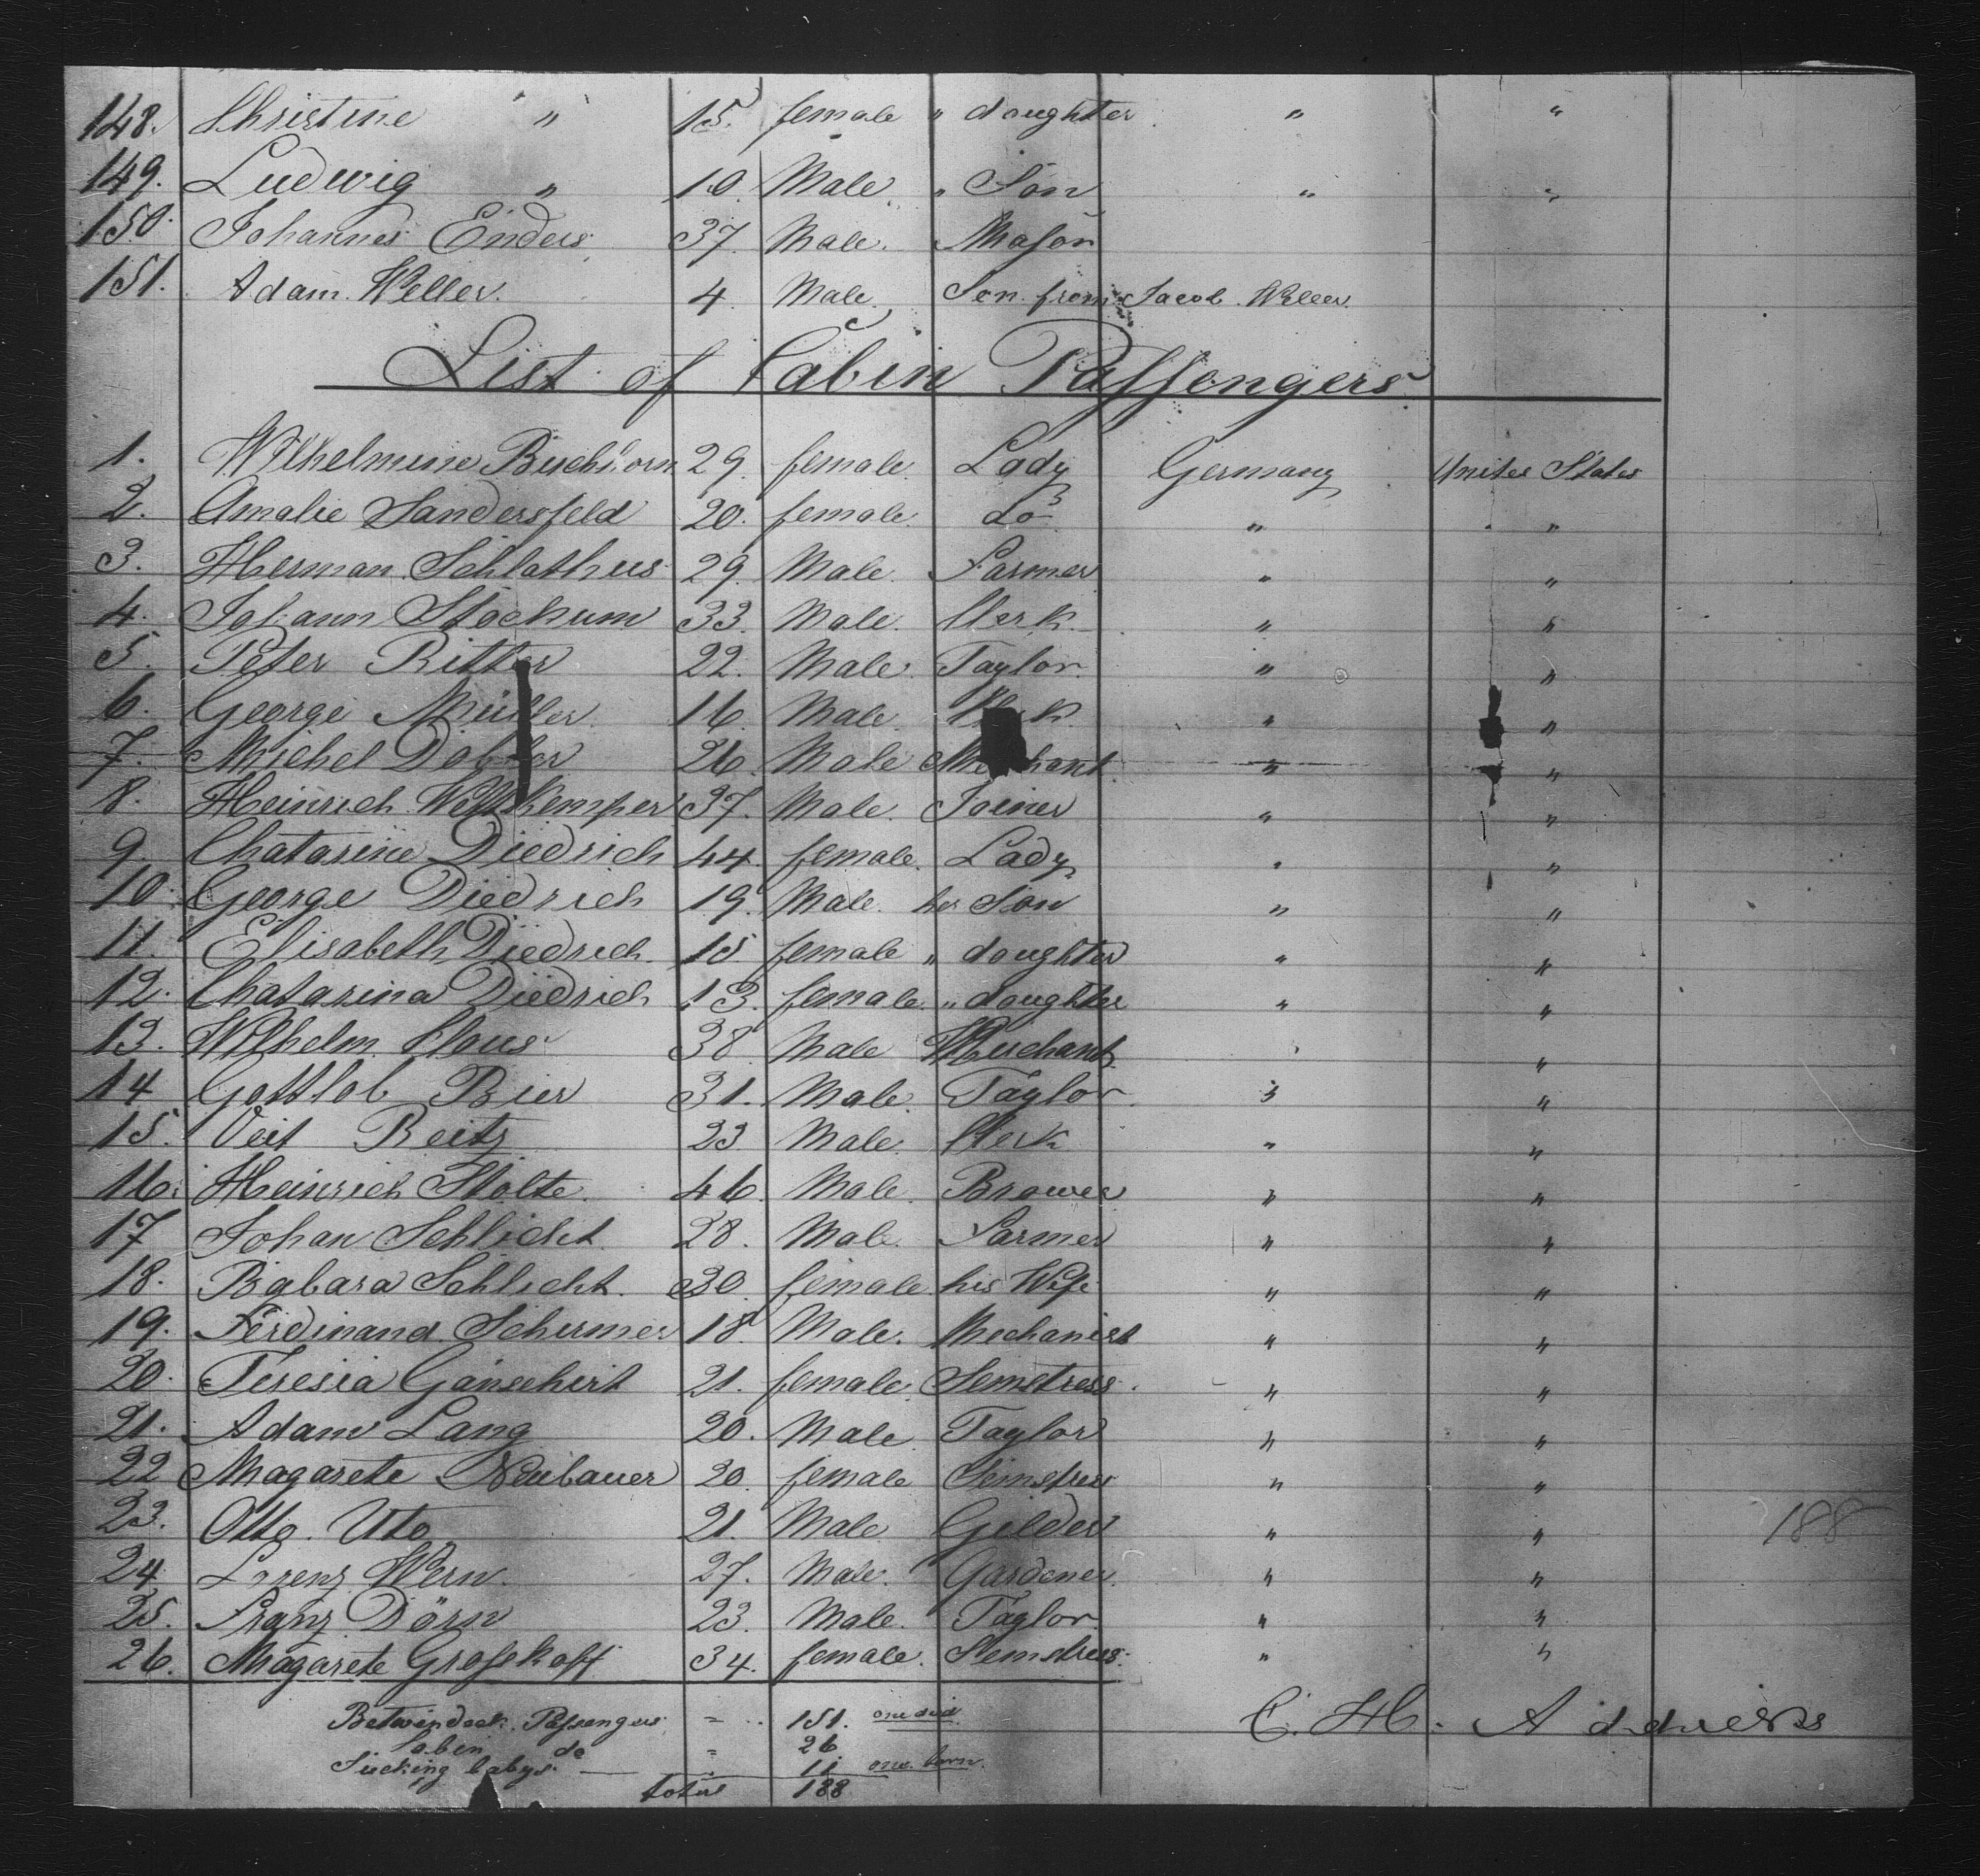 148. Christine " 15. female " daughter " "
149. Ludwig " 10. Male. " Son " "
150. Johannes Enders 37. Male. Mason
151. Adam Weller. 4. Male. Son from Jacob Weller.
List of Cabin Passengers
1. Wilhelmine Buchhorn 29. female. Lady Germany United States
2. Amalie Sandersfeld 20. female. Do " "
3. Herman Schlathus 29. Male. Farmer " "
4. Johann Stockum 33. Male. Clerk " "
5. Peter Ritter 22. Male. Taylor. " "
6. George Müller 16. Male. " "
7. Michel 26. Male Merchant. " "
8. Heinrich 37. Male. Joiner " "
9. Chatarine Diedrich 44. female. Lady " "
10. George Diedrich 19. Male. her Son " "
11. Elisabeth Diedrich. 15 female " daughter " "
12. Chatarina Diedrich 13. female. " daughter " "
13. Wilhelm Claus 38. Male Merchant " "
14 Gottlob Bier 31. Male. Taylor. " "
15. Veit Beitz 23 Male. Clerk " "
16. Heinrich Stolte. 46. Male. Brower " "
17 Johan Schlicht. 28. Male. Farmer " "
18. Babara Schlicht. 30. female. his Wife " "
19. Ferdinand Schirmer 18. Male. Mechanist " "
20. Teresia Gänsehirt 21. female. Semstress. " "
21. Adam Lang 20. Male. Taylor " "
22 Magarete Neubauer 20. female Semstress " "
23. Otto Uto 21. Male Gilder " " 188
24 Lorenz Wern. 27. Male. Gardener. " "
25. Franz Dörn 23. Male. Taylor. " "
26. Magarete Groskoff 34. female. Semstress. " "
Betwindeck Passengers = 151. one died
Cabin do = 26
Sucking babys = 11 one born.
total 188
C. H.